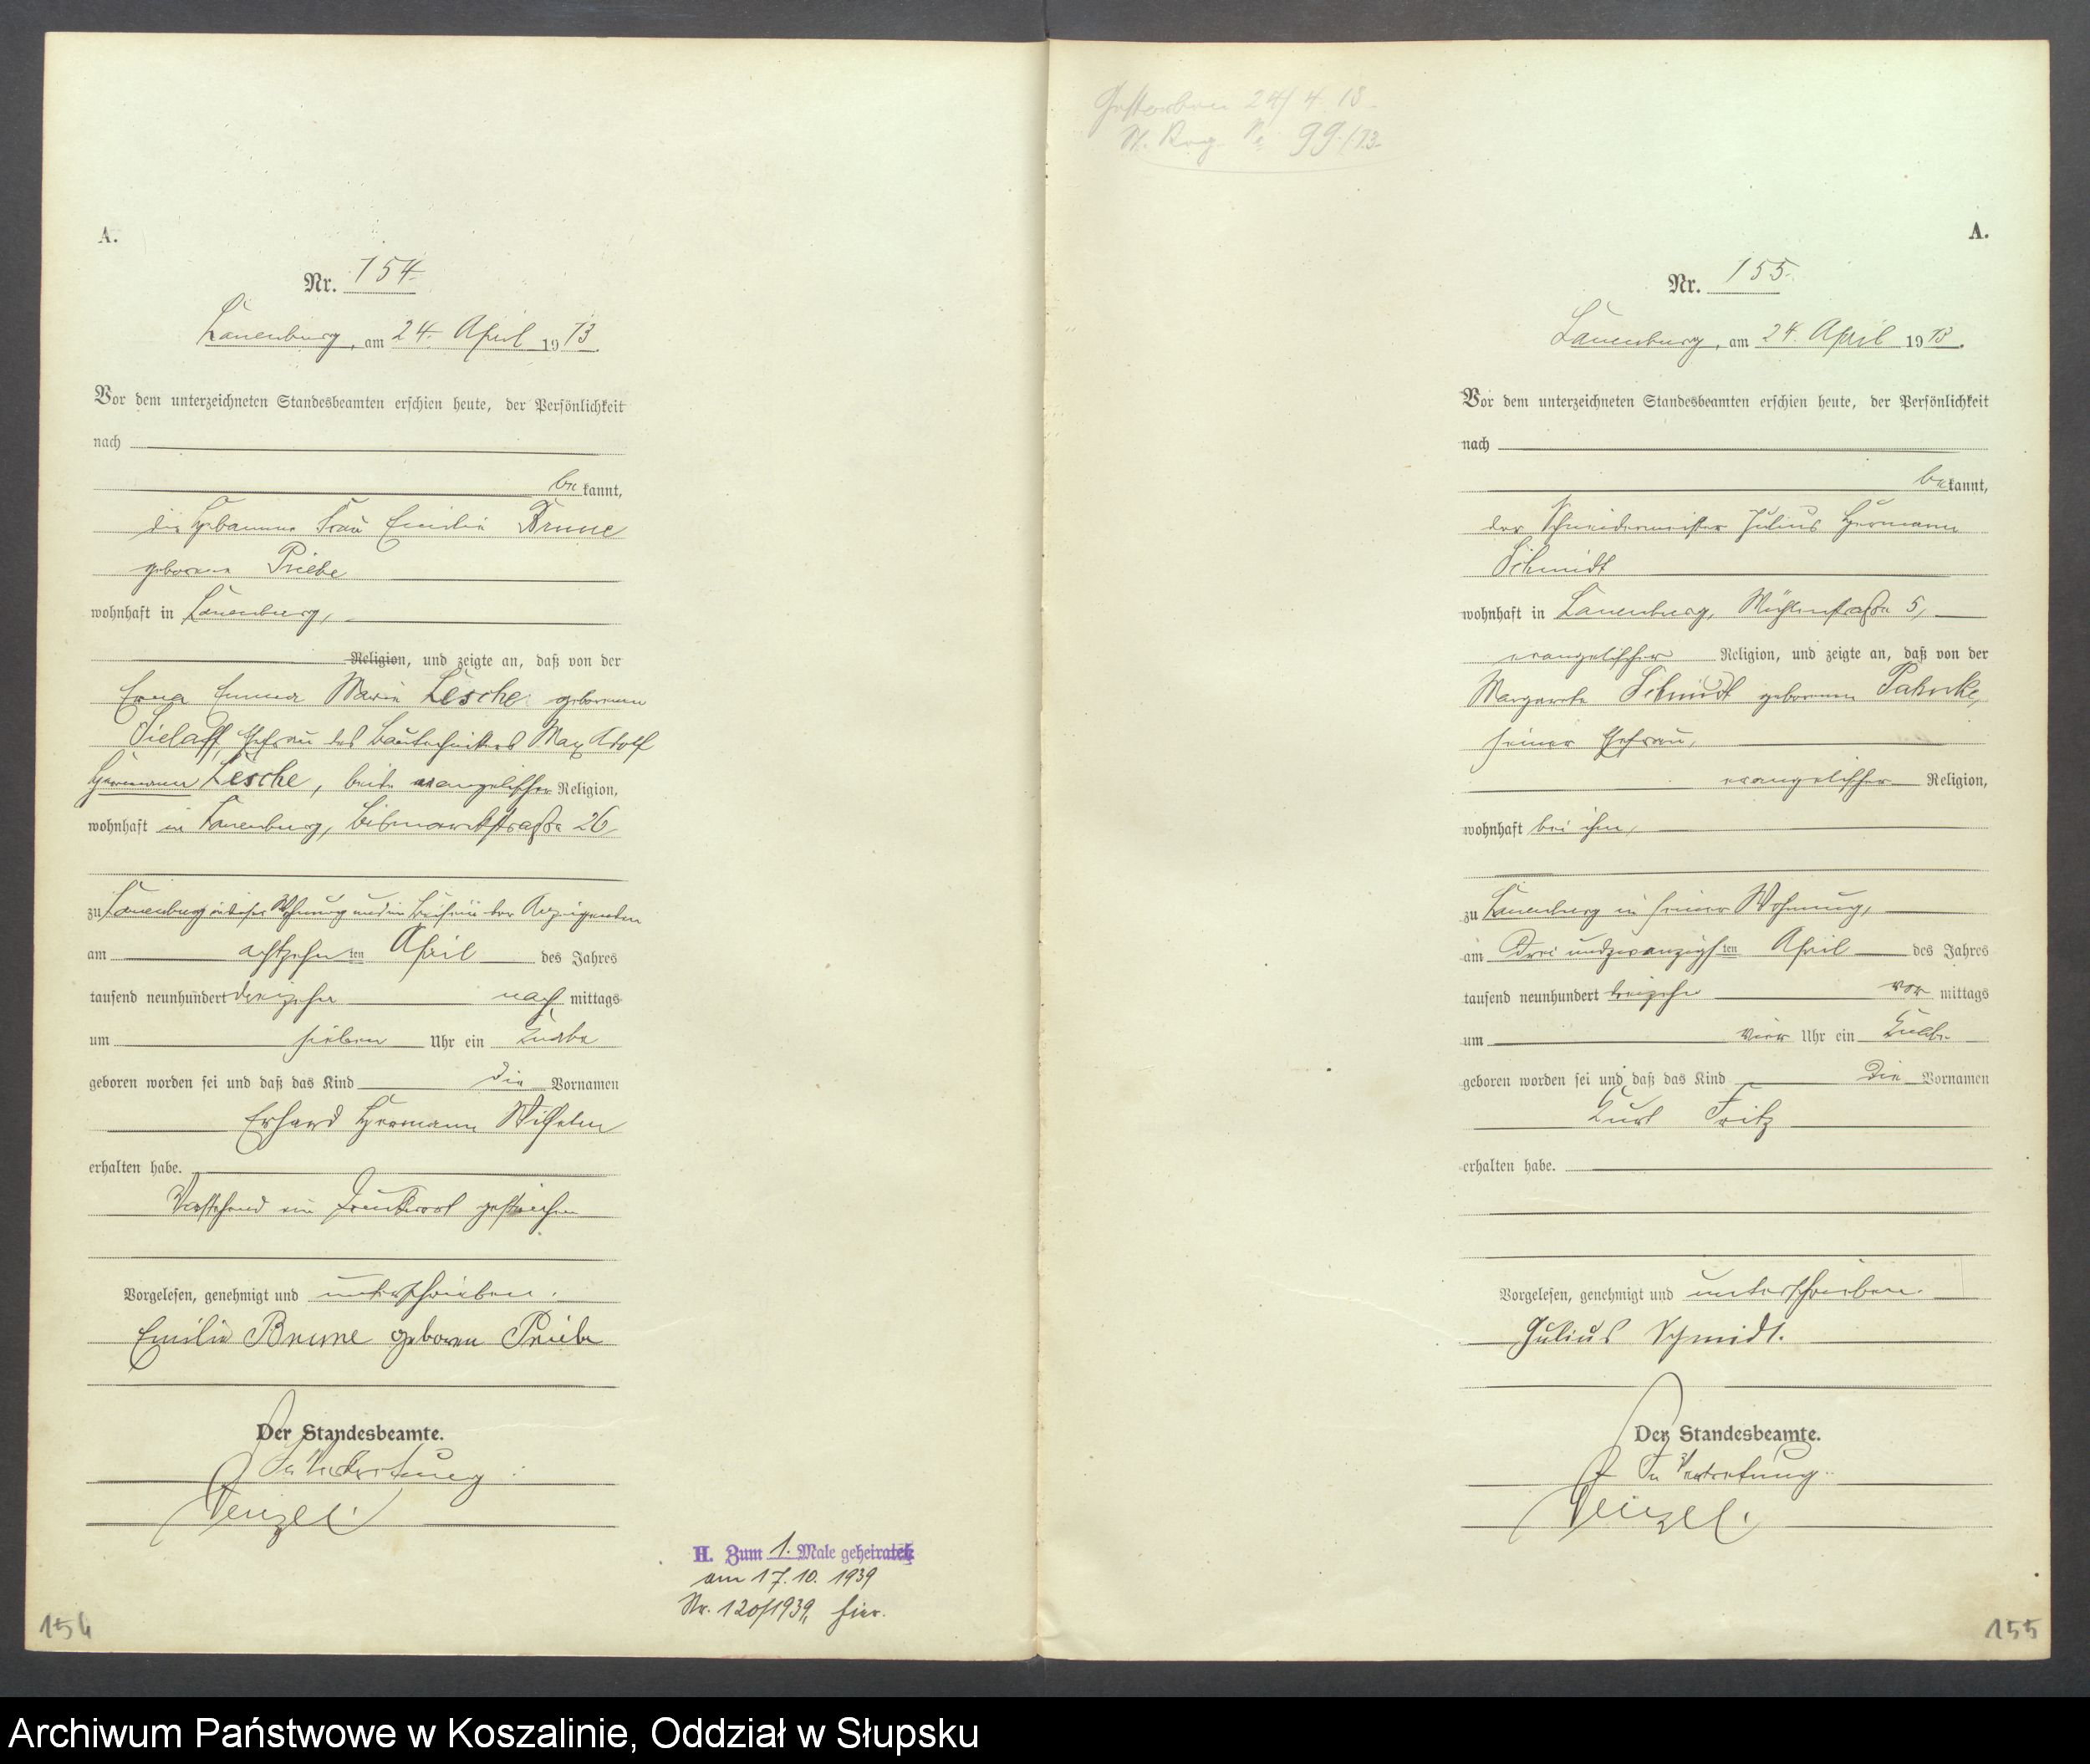 A.
Nr. 154.
Lauenburg, am 24. April 1913.
Vor dem unterzeichneten Standesbeamten erschien heute, der Persönlichkeit
nach
bekannt,
die Hebamme Frau Emilie Brune
geborene Priebe
wohnhaft in Lauenburg,
Religion, und zeigte an, daß von der
Erna Emma Marie Lesche geborenen
Sielaff, Ehefrau des Bautechnikers Max Adolf
Hermann Lesche, beide evangelischer Religion,
wohnhaft in Lauenburg, Bismarckstraße 26,
zu Lauenburg in dieser Wohnung und im Beisein der Anzeigenden
am achtzehnten April des Jahres
tausend neunhundert dreizehn nachmittags
um sieben Uhr ein Knabe
geboren worden sei und daß das Kind die Vornamen
Erhard Hermann Wilhelm
erhalten habe.
Vorstehend ein Druckwort gestrichen
Vorgelesen, genehmigt und unterschrieben.
Emilie Brune geboren Priebe
Der Standesbeamte.
In Vertretung.
Wenzel.
H. Zum 1. Male geheiratet
am 17.10.1939
Nr. 120/1939, hier.
154
Gestorben 24/4.13.
St. Reg. No 99/13.
A.
Nr. 155.
Lauenburg, am 24. April 1913.
Vor dem unterzeichneten Standesbeamten erschien heute, der Persönlichkeit
nach
bekannt,
der Schneidermeister Julius Hermann
Schmidt
wohnhaft in Lauenburg, Mühlenstraße 5,
evangelischer Religion, und zeigte an, daß von der
Margarete Schmidt geborenen Pahnke,
seiner Ehefrau,
evangelischer Religion,
wohnhaft bei ihm,
zu Lauenburg in seiner Wohnung,
am Drei und zwanzigsten April des Jahres
tausend neunhundert dreizehn vormittags
um vier Uhr ein Knabe
geboren worden sei und daß das Kind die Vornamen
Kurt Fritz
erhalten habe.
Vorgelesen, genehmigt und unterschrieben.
Julius Schmidt.
Der Standesbeamte.
In Vertretung.
Wenzel.
155
Archiwum Państwowe w Koszalinie, Oddział w Słupsku